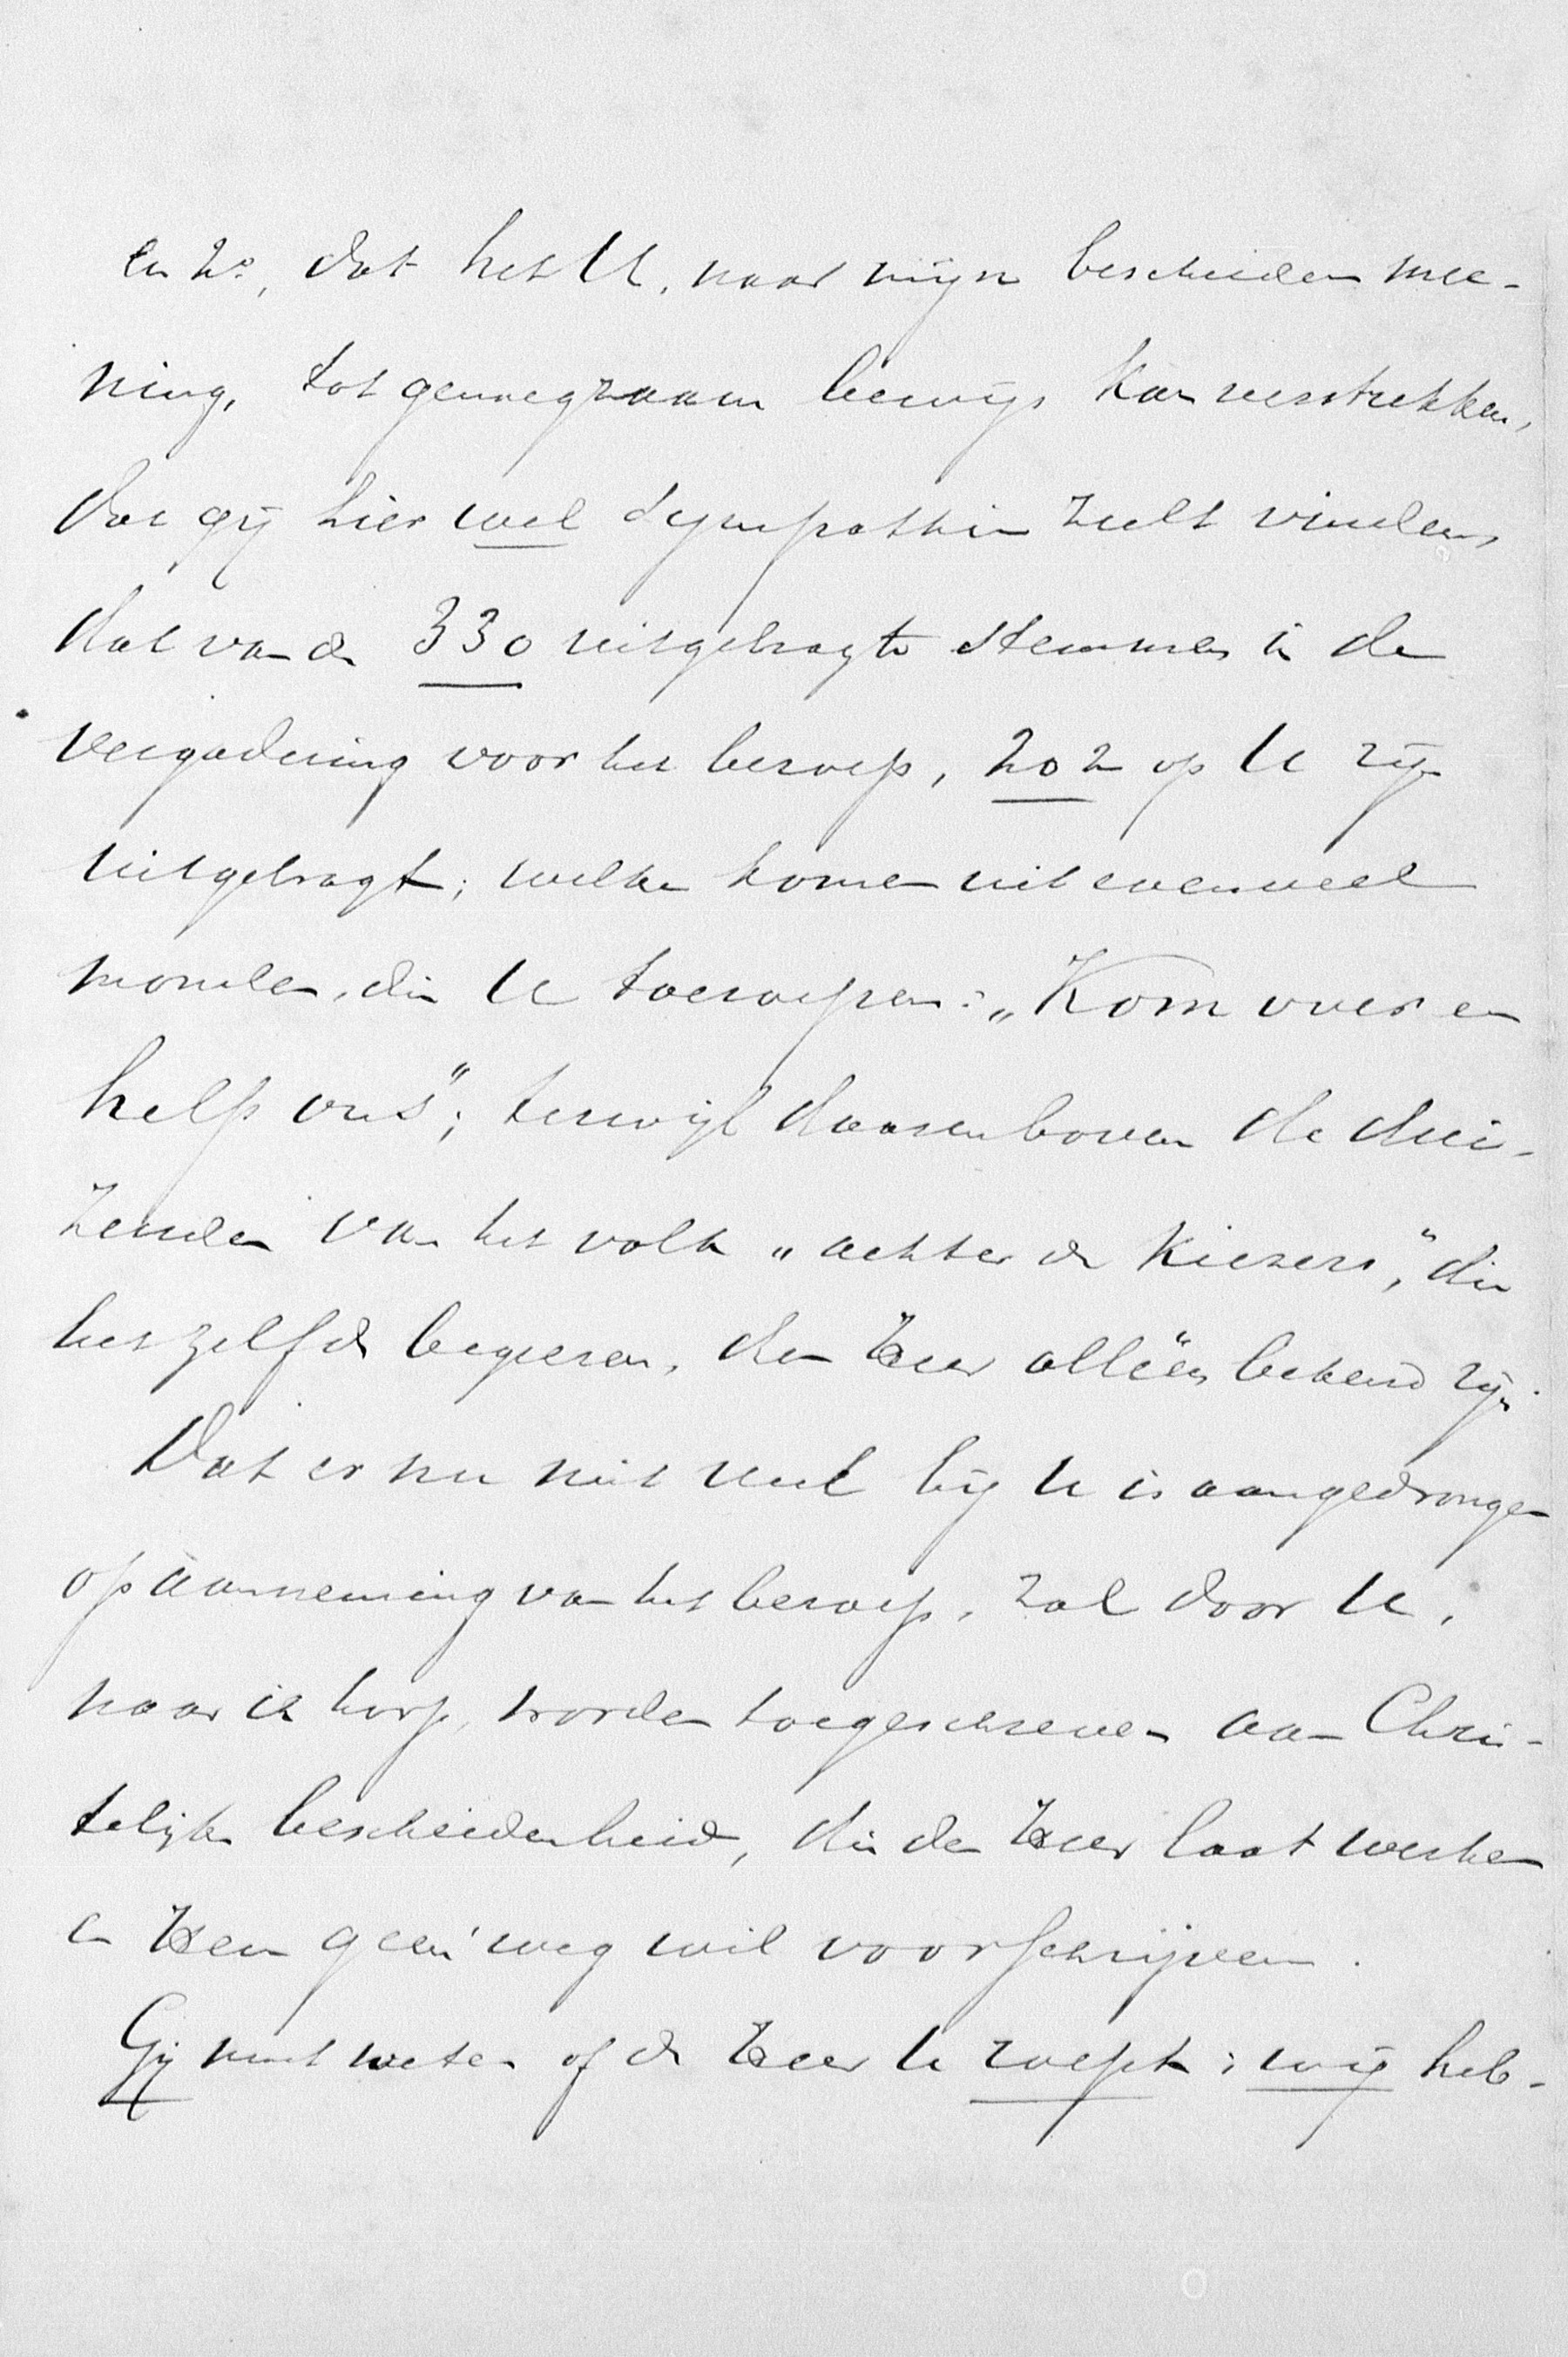 en 2o, dat het U, naar mijn bescheiden mee-
ning, tot genoegzaam bewijs kan verstrekken,
dat gij hier wel sympathie zult vinden,
dat van de 330 uitgebragte stemmen in de
vergadering voor het beroep, 202 op U zijn
uitgebragt; welke komen uit evenveel
monden, die U toeroepen: „Kom over en
help ons”; terwijl daarenboven de dui-
zenden van het volk „achter de kiezers,” die
hetzelfde begeeren, den Heer alléén bekend zijn.
Dat er nu niet veel bij U is aangedrongen
op aanneming van het beroep, zal door U,
naar ik hoop, worden toegeschreven aan Chris-
telijke bescheidenheid, die den Heer laat werken
en Hem geen weg wil voorschrijven.
Gij moet weten of de Heer U roept; wij heb-